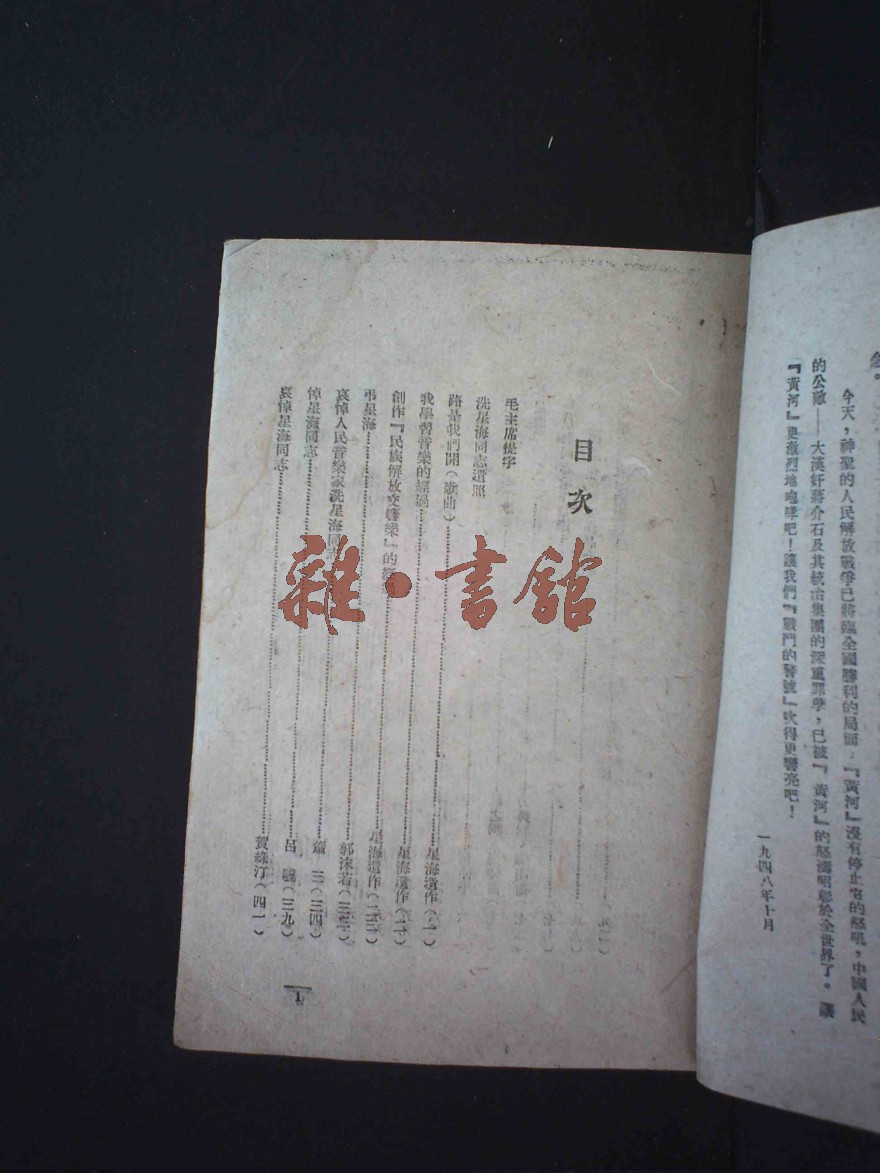 今天，神聖的人民解放戰爭已將臨全國勝利的局面，『黃河』沒有停止它的怒吼，中國人民
的公敵——大漢奸蔣介石及其統治集團的深重罪孽，已被『黃河』的怒濤昭彰於全世界了。讓
『黃河』更激烈地咆哮吧！讓我們『戰鬥的警號』吹得更響亮吧！
一九四八年十月
目次
毛主席提字
洗星海同志遺照
路是我們開（歌曲）……星海遺作（六）
我學習音樂的經過……星海遺作
創作『民族解放交響樂』的經……星海遺作
弔星海……郭沫若
哀悼人民音樂家洗星海同志……蕭 三（三四）
悼星海同志……呂 驥（三九）
哀悼星海同志……賀綠汀（四一）
1
雜·書館